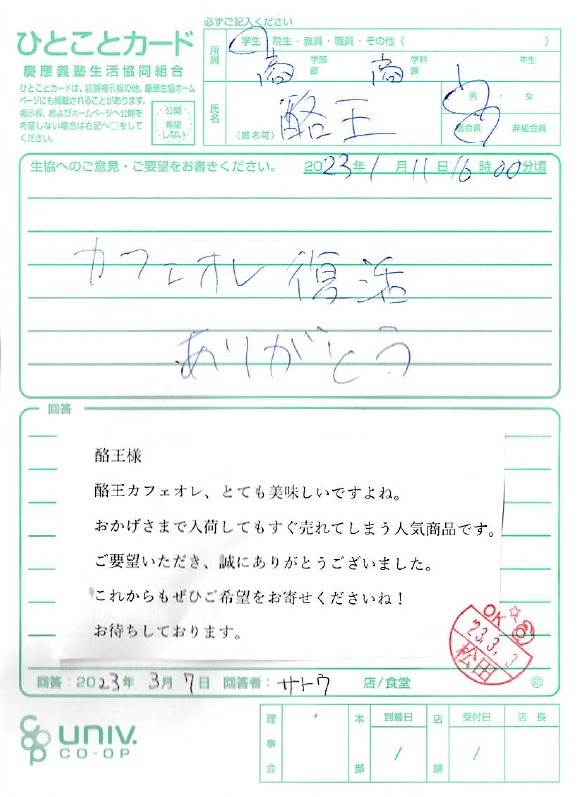 必ずご記入ください
ひとことカード
慶應義塾生活協同組合
ひとことカードは、店頭掲示板の他、慶應生協ホームページにも掲載されることがあります。
掲示板、およびホームページへ公開を
希望しない場合は右記へ○をして
ください。
公開
希望
しない
所属
学生 院生・教員・職員・その他 ( )
商 学部 商 学科 年生
部 課
氏名
(匿名可)
酪王
男 ・ 女
組合員 非組合員
生協へのご意見・ご要望をお書きください。 2023年1月11日16時00分頃
カフェオレ 復活
ありがとう
回答
酪王様
酪王カフェオレ、とても美味しいですよね。
おかげさまで入荷してもすぐ売れてしまう人気商品です。
ご要望いただき、誠にありがとうございました。
これからもぜひご希望をお寄せくださいね！
お待ちしております。
OK
23.3.3
松田
回答：2023年 3月 7日 回答者：サトウ 店/食堂 印
UNIV.
CO-OP
理事会 本部 到着日 / 店舗 受付日 / 店長